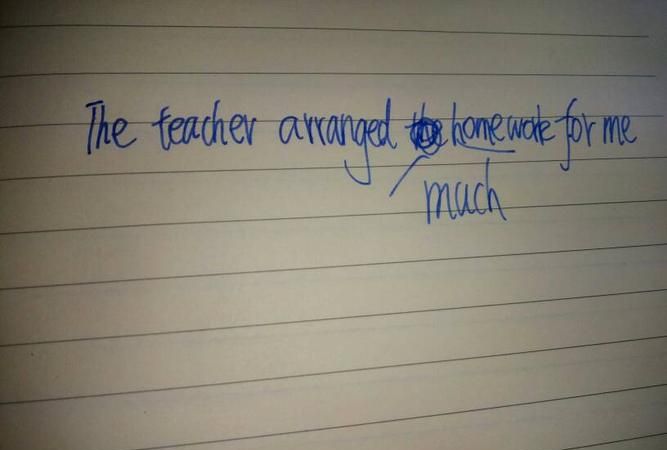 The teacher arranged the homework for me
much